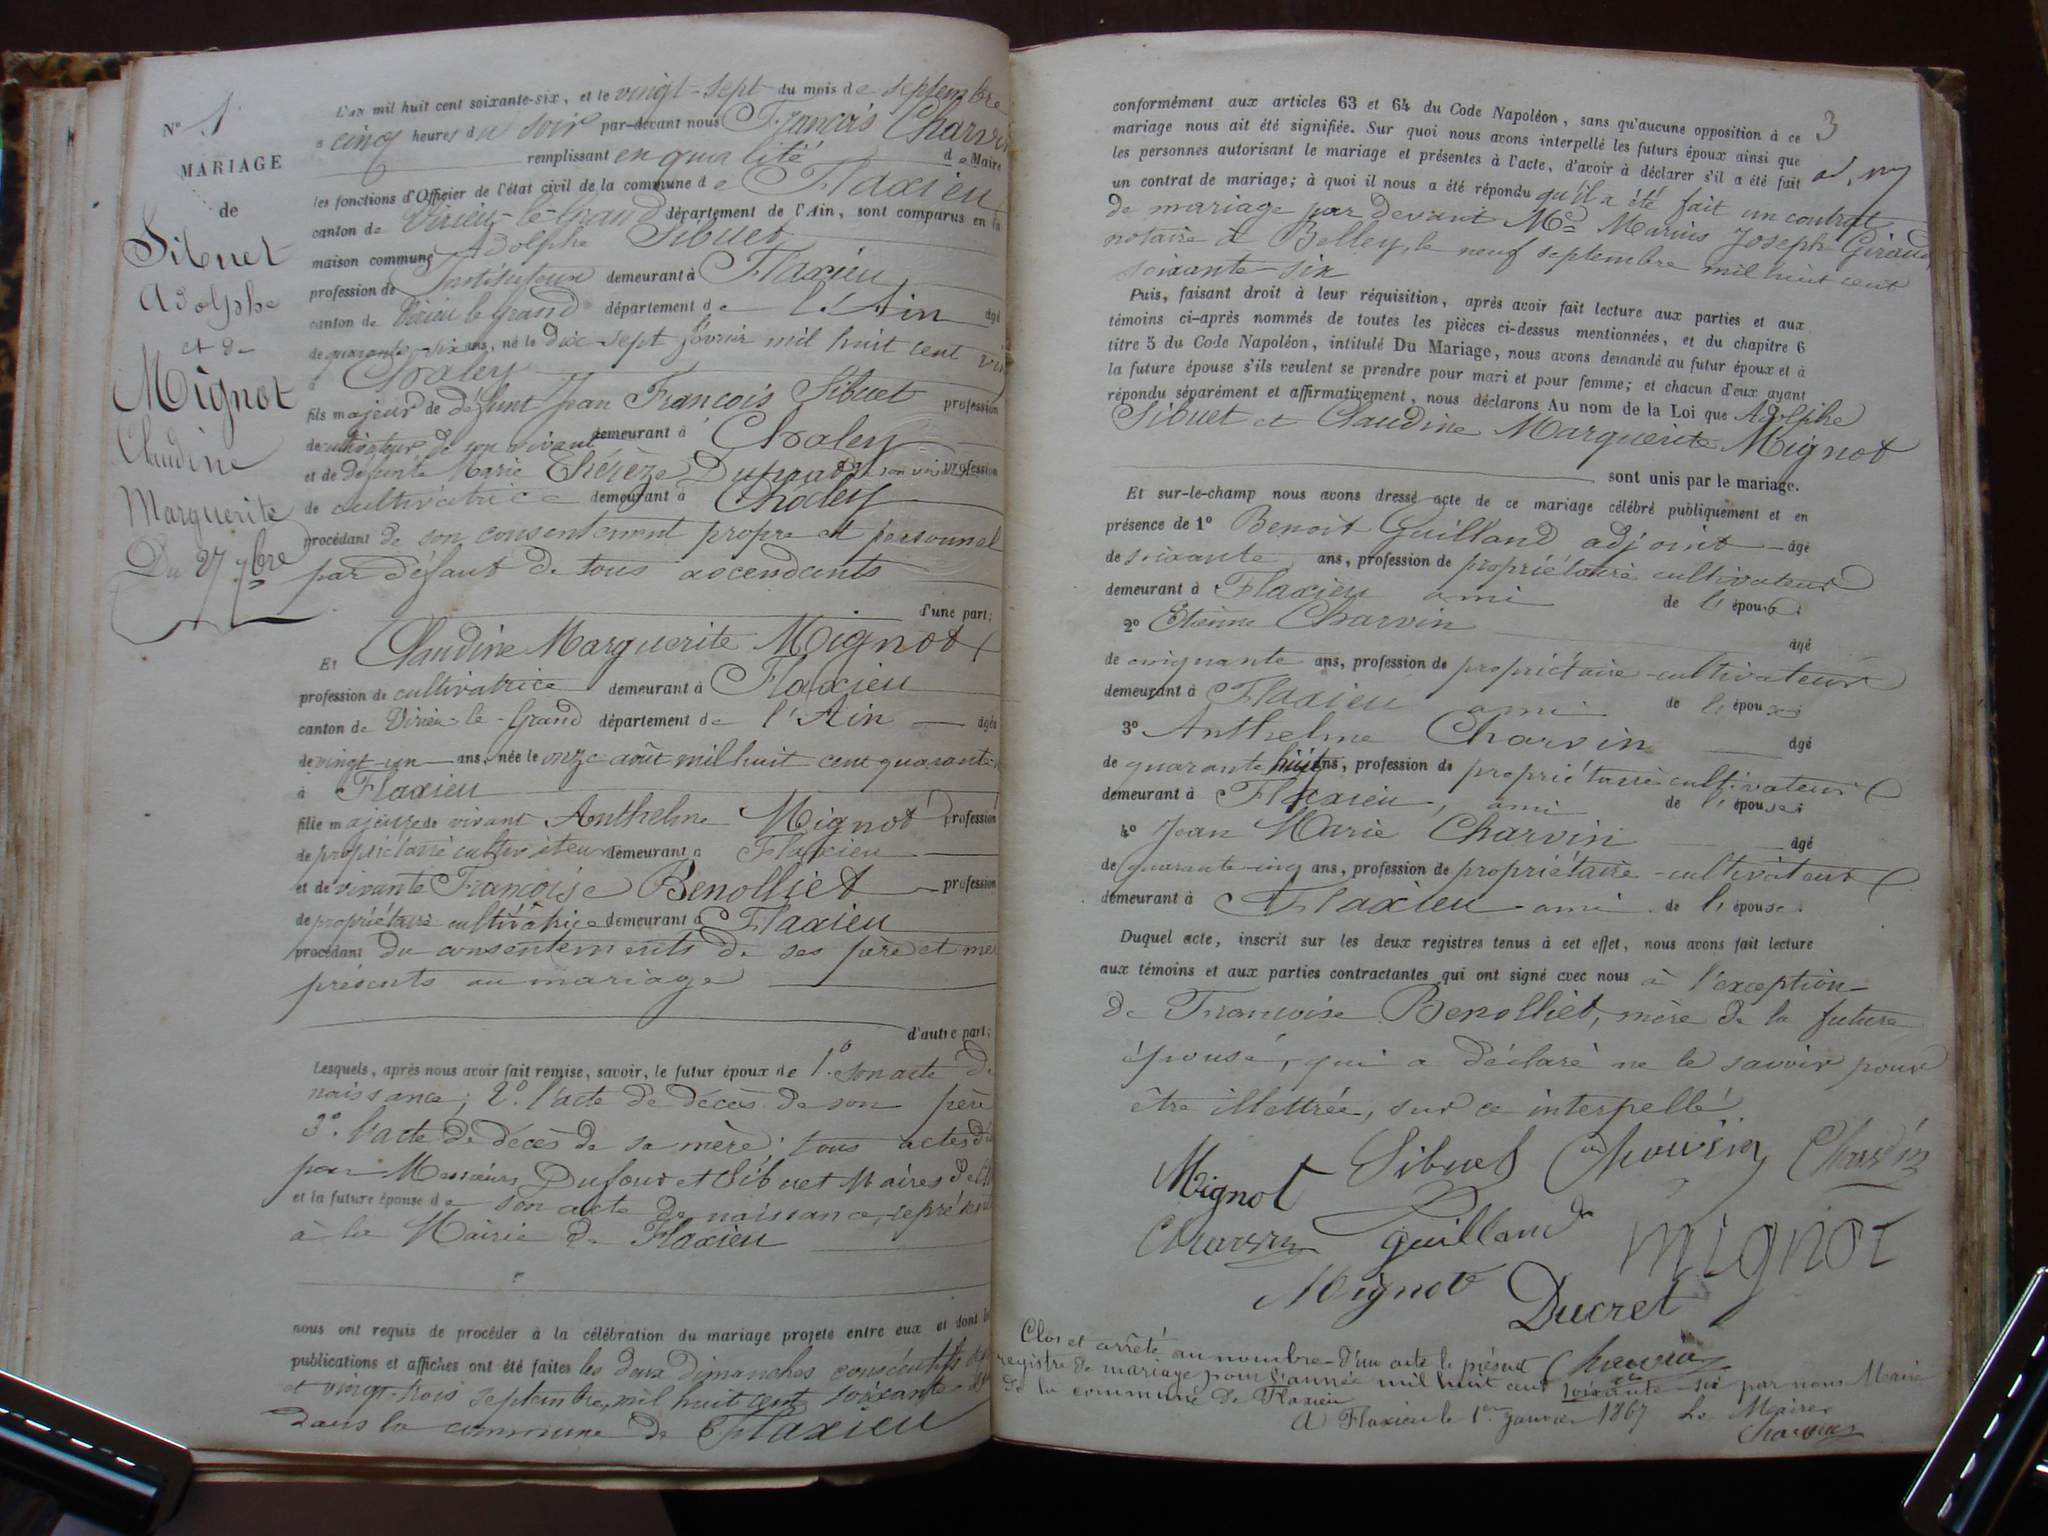 N° 1
MARIAGE
de
Sibuet
Adolphe
et de
Mignot
Claudine
Marguerite
Du 27 7bre
L'AN mil huit cent soixante-six, et le vingt-sept du mois de septembre
à cinq heures du soir par-devant nous François Charvin
remplissant en qualité de Maire
les fonctions d'Officier de l'état civil de la commune de Flaxieu
canton de Virieu-le-Grand département de l'Ain, sont comparus en la
maison commune Adolphe Sibuet
profession de Instituteur demeurant à Flaxieu
canton de Virieu le Grand département de l'Ain âgé
de quarante-six ans, né le dix-sept février mil huit cent vin
à Chaley
fils majeur de défunt Jean François Sibuet profession
de cultivateur de son vivant demeurant à Chaley
et de défunte Marie Thérèze de son viv profession
de cultivatrice demeurant à Chaley
procédant de son consentement propre et personnel
par défaut de tous ascendants
d'une part;
Et Claudine Marguerite Mignot
profession de cultivatrice demeurant à Flaxieu
canton de Virieu-le-Grand département de l'Ain âgée
de vingt-un ans, née le onze août mil huit cent quarante
à Flaxieu
fille majeure de vivant Anthelme Mignot profession
de propriétaire cultivateur demeurant à Flaxieu
et de vivante Françoise Benolliet profession
de propriétaire cultivatrice demeurant à Flaxieu
procédant du consentements de ses père et me
présents au mariage
d'autre part;
Lesquels, après nous avoir fait remise, savoir, le futur époux de 1° son acte de
naissance; 2° l'acte de décès de son père
3° l'acte de décès de sa mère; tous actes
par Messieurs Dufour et Sibuet Maires de
et la future épouse de son acte de naissance, représenté
à la Mairie de Flaxieu
nous ont requis de procéder à la célébration du mariage projeté entre eux et dont les
publications et affiches ont été faites les deux dimanches consécutifs
et vingt-trois septembre, mil huit cent soixante-six
dans la commune de Flaxieu
3
conformément aux articles 63 et 64 du Code Napoléon, sans qu'aucune opposition à ce
mariage nous ait été signifiée. Sur quoi nous avons interpellé les futurs époux ainsi que
les personnes autorisant le mariage et présentes à l'acte, d'avoir à déclarer s'il a été fait
un contrat de mariage; à quoi il nous a été répondu qu'il a été fait un contrat
de mariage par devant Me Marius Joseph Giraud
notaire à Belley, le neuf septembre mil huit cent
soixante-six
Puis, faisant droit à leur réquisition, après avoir fait lecture aux parties et aux
témoins ci-après nommés de toutes les pièces ci-dessus mentionnées, et du chapitre 6
titre 5 du Code Napoléon, intitulé Du Mariage, nous avons demandé au futur époux et à
la future épouse s'ils veulent se prendre pour mari et pour femme; et chacun d'eux ayant
répondu séparément et affirmativement, nous déclarons Au nom de la Loi que Adolphe
Sibuet et Claudine Marguerite Mignot
sont unis par le mariage.
Et sur-le-champ nous avons dressé acte de ce mariage célébré publiquement et en
présence de 1° Benoit Guilland adjoint âgé
de soixante ans, profession de propriétaire cultivateur
demeurant à Flaxieu ami de l'épouse;
2° Etienne Charvin âgé
de cinquante ans, profession de propriétaire-cultivateur
demeurant à Flaxieu ami de l'épouse;
3° Anthelme Charvin âgé
de quarante huit ans, profession de propriétaire cultivateur
demeurant à Flaxieu, ami de l'épouse;
4° Jean Marie Charvin âgé
de quarante-cinq ans, profession de propriétaire-cultivateur
demeurant à Flaxieu ami de l'épouse.
Duquel acte, inscrit sur les deux registres tenus à cet effet, nous avons fait lecture
aux témoins et aux parties contractantes qui ont signé avec nous à l'exception
de Françoise Benolliet, mère de la future
épouse, qui a déclaré ne le savoir pour
être illettrée, sur ce interpellé.
Mignot Sibuet Charvin Charvin
Charvin Guilland mignot
Mignot Ducret
Charvin
Clos et arrêté au nombre d'un acte le présent
registre de mariage pour l'année mil huit cent soixante-six par nous Maire
de la commune de Flaxieu
A Flaxieu le 1er janvier 1867 Le Maire
Charvin